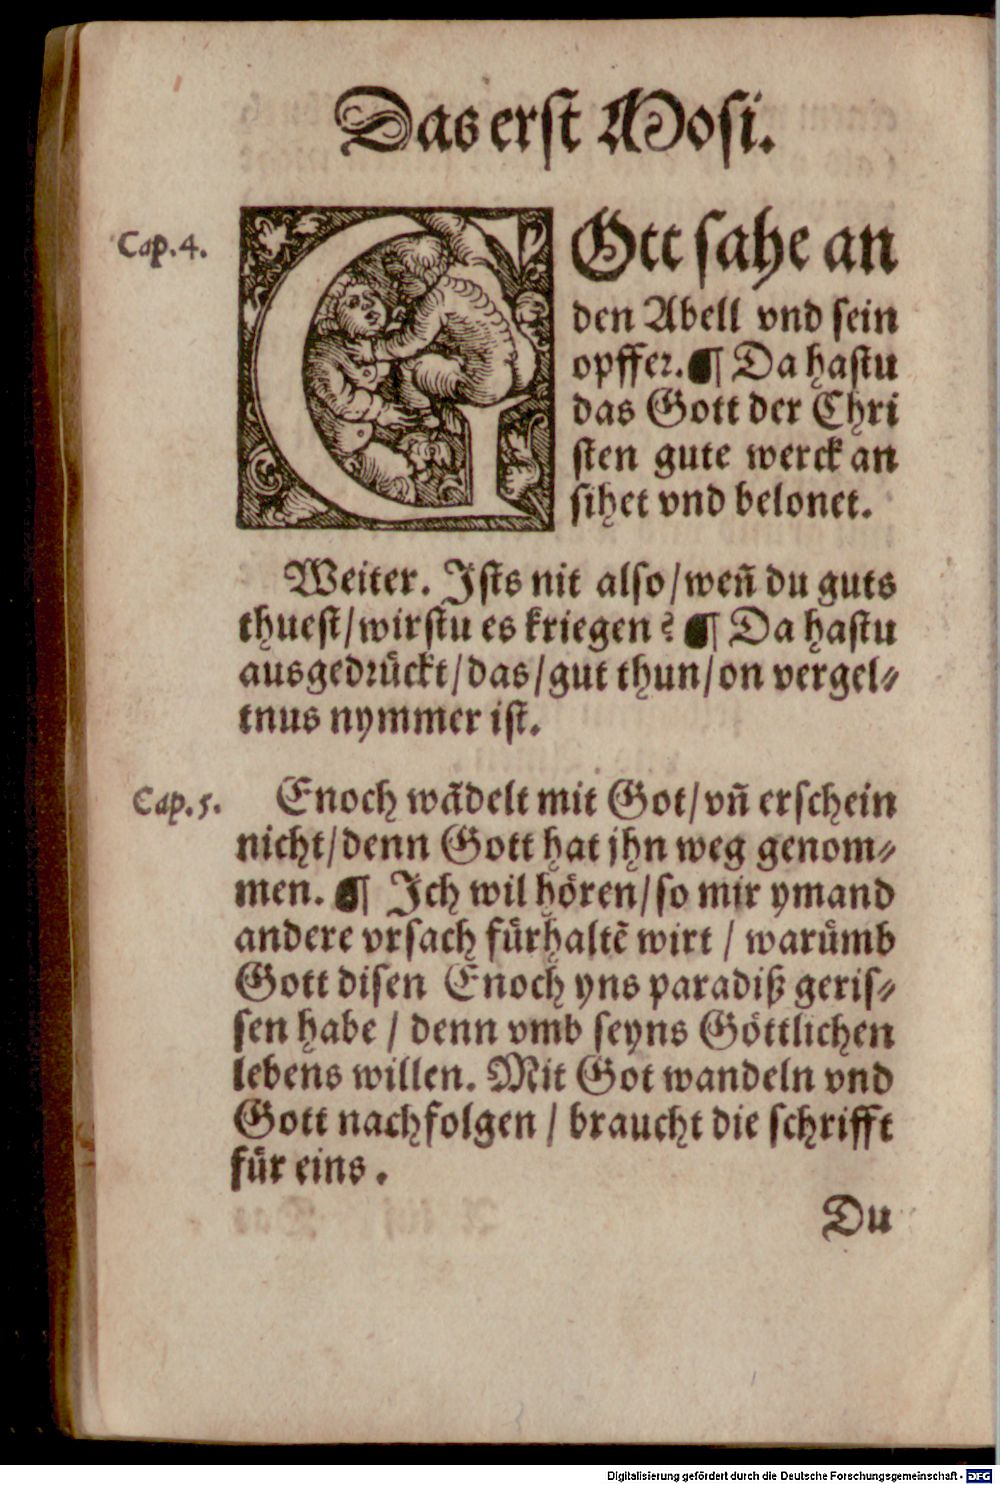 Das erst Mosi.
Cap. 4.
GOtt sahe an
den Abell vnd sein
opffer. ¶ Da hastu
das Gott der Chri
sten gute werck an
sihet vnd belonet.
Weiter. Ists nit also/wen̄ du guts
thuest/wirstu es kriegen? ¶ Da hastu
ausgedrückt/das/gut thun/on vergel-
tnus nymmer ist.
Cap. 5.
Enoch wādelt mit Got/vn̄ erschein
nicht/denn Gott hat jhn weg genom-
men. ¶ Ich wil hören/so mir ymand
andere vrsach fürhaltē wirt / warümb
Gott disen Enoch yns paradiß geris-
sen habe / denn vmb seyns Göttlichen
lebens willen. Mit Got wandeln vnd
Gott nachfolgen / braucht die schrifft
für eins.
Du
Digitalisierung gefördert durch die Deutsche Forschungsgemeinschaft - DFG